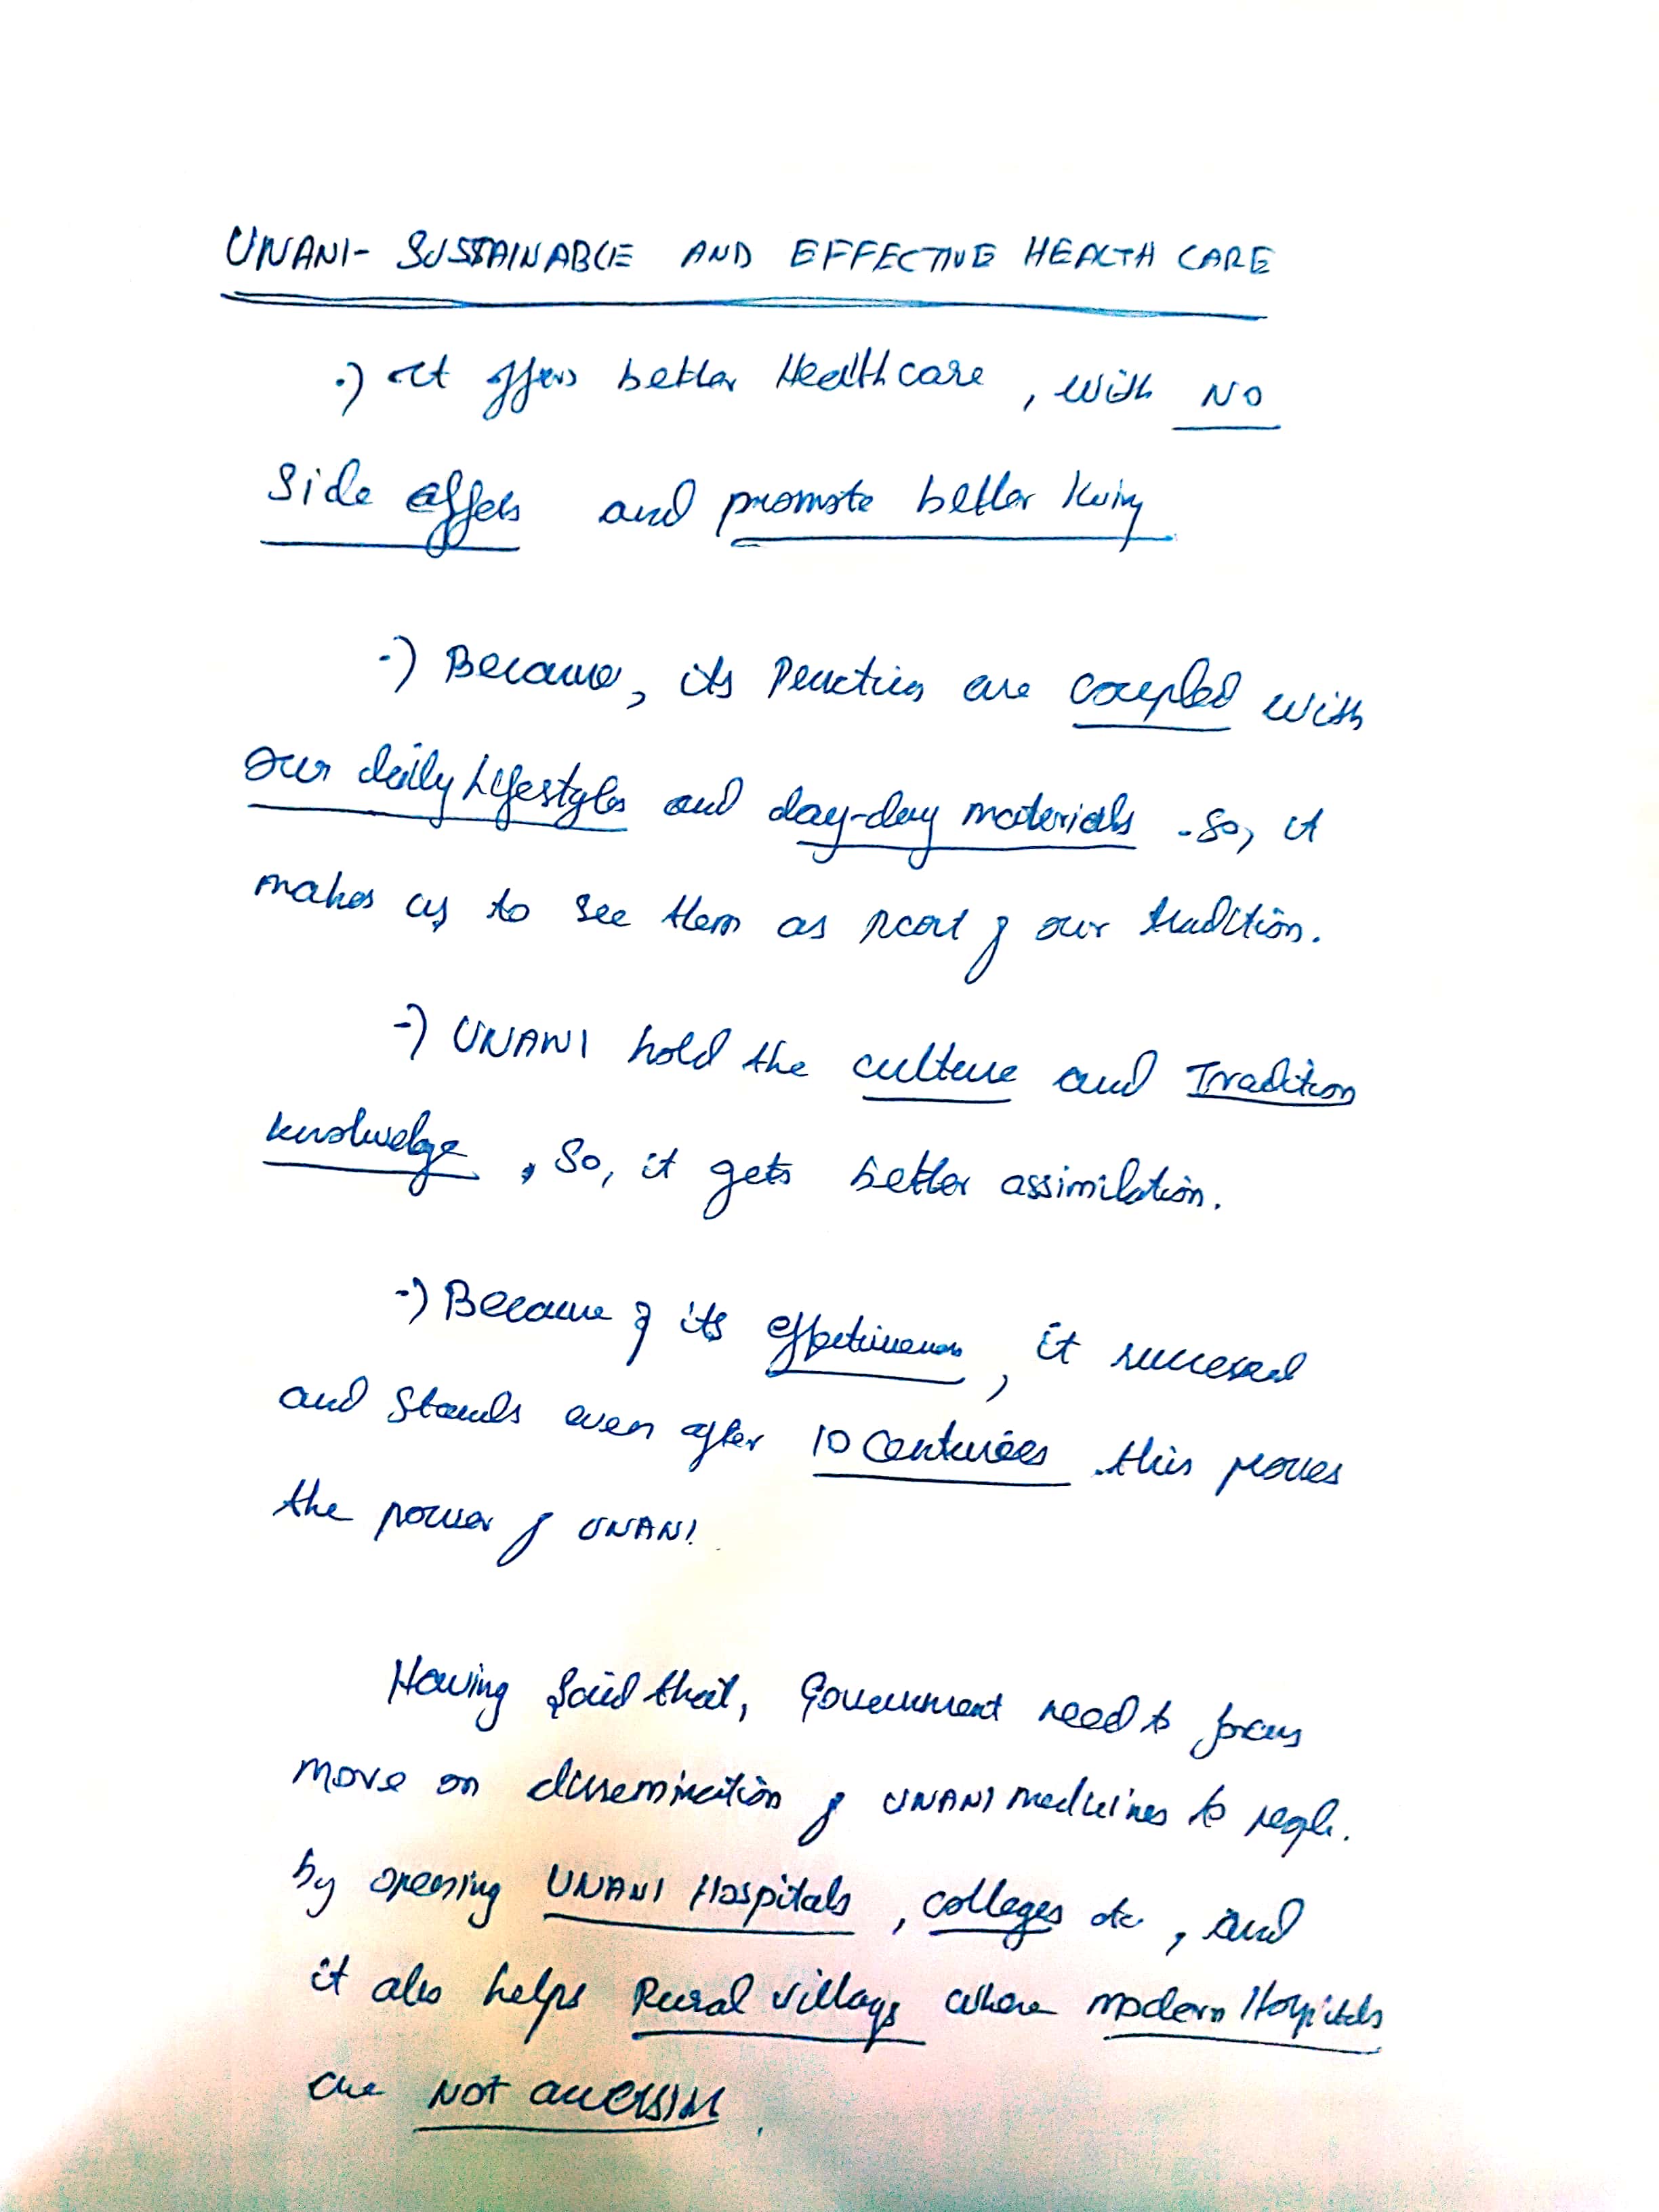 UNANI- SUSTAINABLE AND EFFECTIVE HEALTH CARE
·) It offers better Healthcare, with NO
Side affets and promote better living
-) Because, its Practices are coupled with
our daily Lifestyles and day-day materials. So, it
makes us to see them as part of our tradition.
-) UNANI hold the culture and Tradition
knolwedge. So, it gets better assimilation.
-) Because of its effectiveness, it succeed
and stands even after 10 Centuries. this proves
the power of UNANI.
Having said that, Government need to focus
more on dissemination of UNANI medicines to people.
by opening UNANI Hospitals, colleges etc, and
it also helps Rural village where modern Hospitals
are NOT accessible.